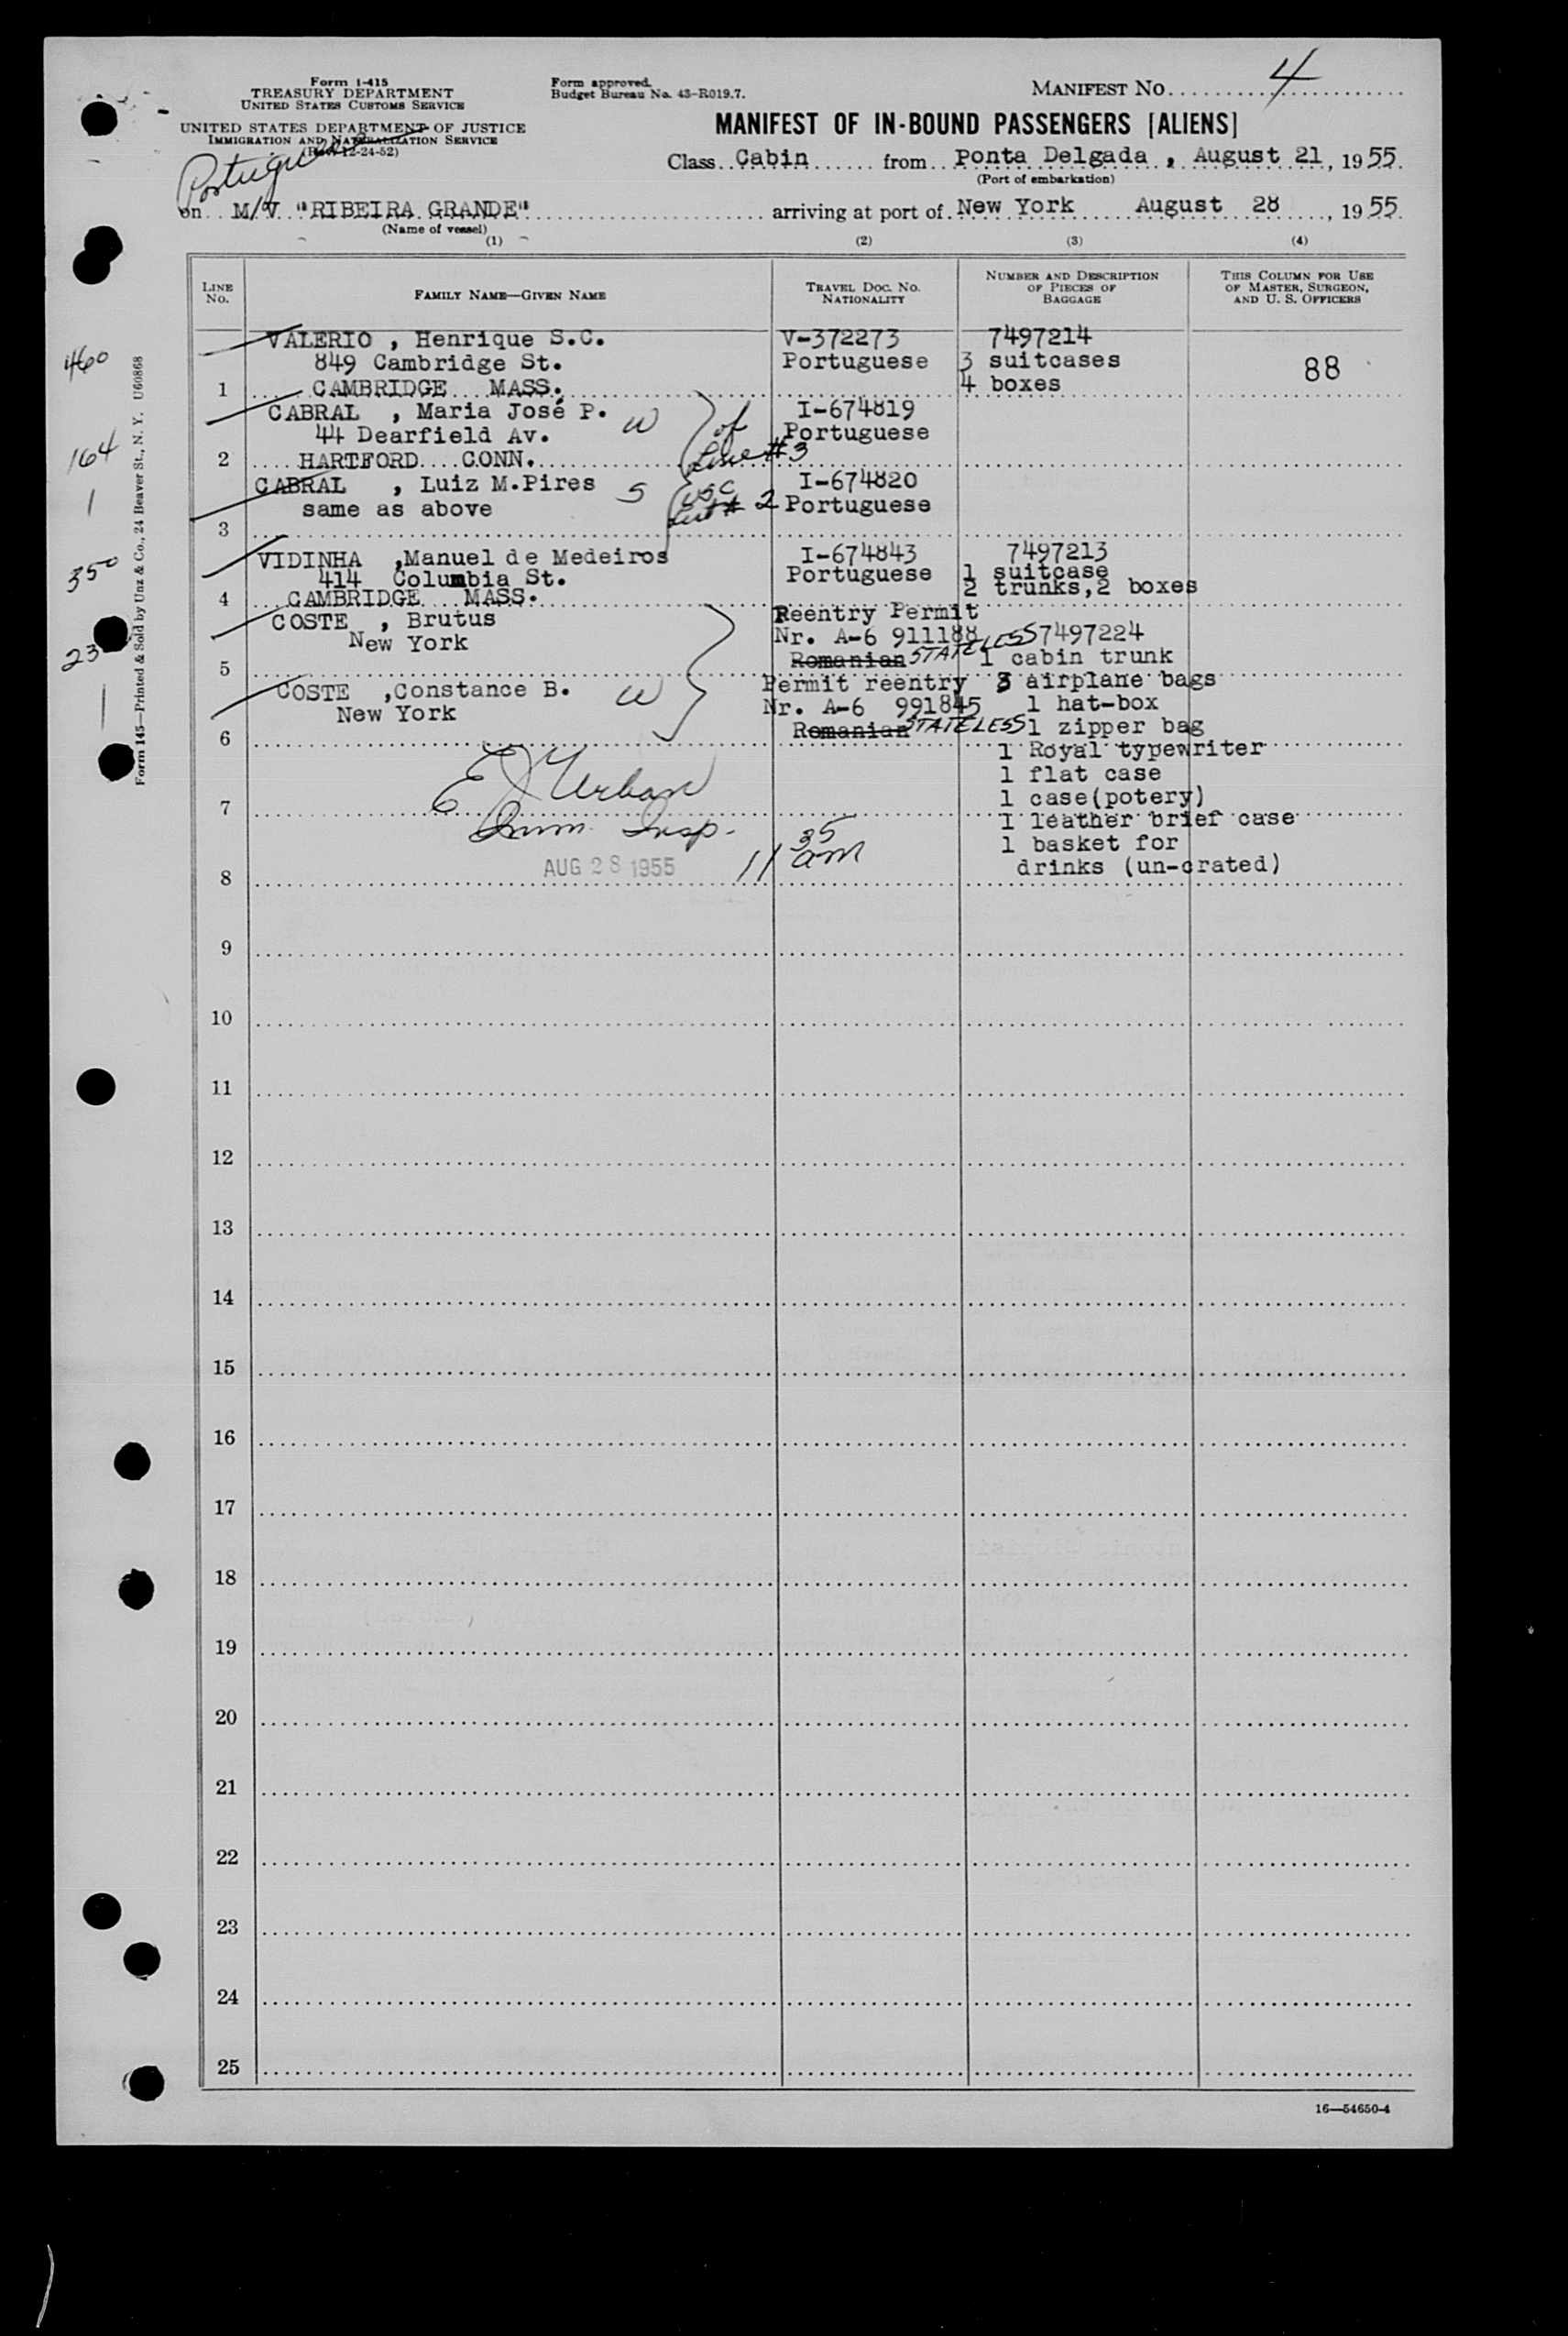 Form I-415
TREASURY DEPARTMENT
UNITED STATES CUSTOMS SERVICE
UNITED STATES DEPARTMENT OF JUSTICE
IMMIGRATION AND NATURALIZATION SERVICE
(Rev. 12-24-52)
Portuguese
Form approved.
Budget Bureau No. 43-R019.7.
MANIFEST NO. 4
MANIFEST OF IN-BOUND PASSENGERS [ALIENS]
Class Cabin from Ponta Delgada , August 21, 1955.
(Port of embarkation)
on M/V "RIBEIRA GRANDE" arriving at port of New York August 28, 1955.
(Name of vessel)
(1) (2) (3) (4)
LINE NO.
FAMILY NAME—GIVEN NAME
TRAVEL DOC. NO. NATIONALITY
NUMBER AND DESCRIPTION OF PIECES OF BAGGAGE
THIS COLUMN FOR USE OF MASTER, SURGEON, AND U. S. OFFICERS
VALERIO , Henrique S.C. V-372273 7497214
849 Cambridge St. Portuguese 3 suitcases 88
1 CAMBRIDGE MASS. 4 boxes
CABRAL , Maria José P. W of I-674819
44 Dearfield Av. Portuguese
2 HARTFORD CONN. Line #3
CABRAL , Luiz M.Pires S USC I-674820
same as above # 2 Portuguese
3
VIDINHA ,Manuel de Medeiros I-674843 7497213
414 Columbia St. Portuguese 1 suitcase
4 CAMBRIDGE MASS. 2 trunks,2 boxes
COSTE , Brutus Reentry Permit
New York Nr. A-6 911188 7497224
5 Romanian STATELESS 1 cabin trunk
COSTE ,Constance B. W Permit reentry 3 airplane bags
New York Nr. A-6 991845 1 hat-box
6 Romanian STATELESS 1 zipper bag
1 Royal typewriter
1 flat case
7 1 case(potery)
1 leather brief case
1 basket for
8 drinks (un-crated)
E J Urban
Imm. Insp.
AUG 28 1955 11 35 am
9
10
11
12
13
14
15
16
17
18
19
20
21
22
23
24
25
16—54650-4
460
164
1
350
23
1
Form 145—Printed & Sold by Unz & Co., 24 Beaver St., N. Y. U60868